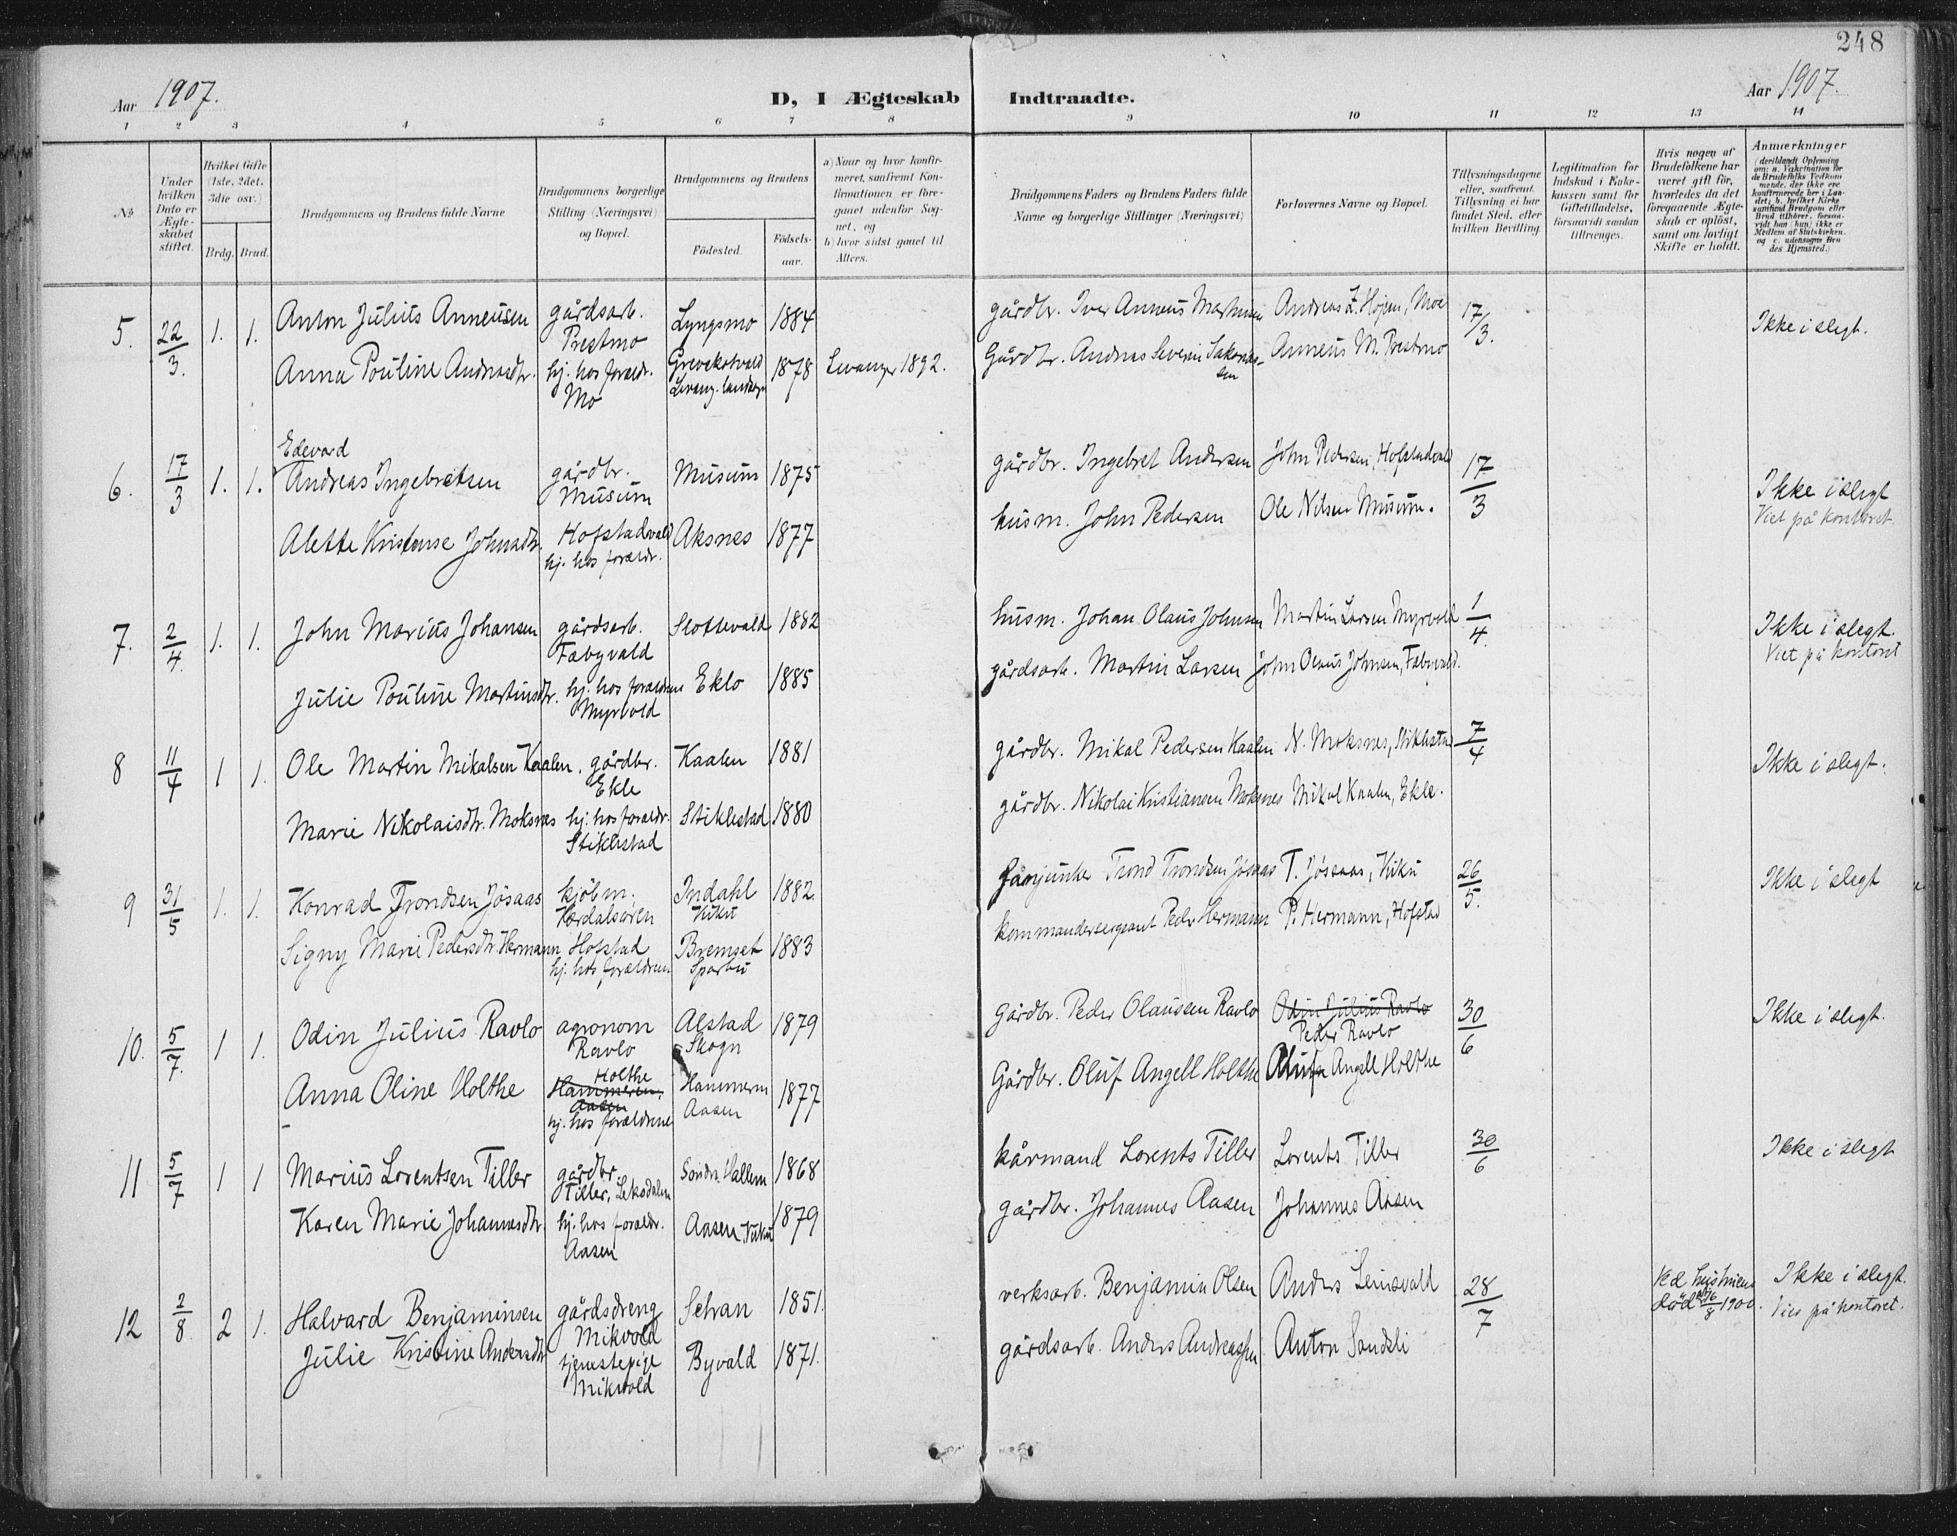 248
Aar 1907.
D, I Ægteskab Indtraadte.
Aar 1907.
1 2 3 4 5 6 7 8 9 10 11 12 13 14
No
Under hvilken Dato er Ægteskabet stiftet.
Hvilket Gifte (1ste, 2det, 3die osv.)
Brdg. Brud.
Brudgommens og Brudens fulde Navne
Brudgommens borgerlige Stilling (Næringsvei) og Bopæl.
Brudgommens og Brudens
Fødested. Fødselsaar.
a) Naar og hvor konfirmeret, saafremt Konfirmationen er foregaaet udenfor Sognet, og
b) hvor sidst gaaet til Alters.
Brudgommens Faders og Brudens Faders fulde Navne og borgerlige Stillinger (Næringsvei)
Forlovernes Navne og Bopæl.
Tillysningsdagene eller, saafremt Tillysning ei har fundet Sted, efter hvilken Bevilling.
Legitimation for Indskud i Enkekassen samt for Giftetilladelse, forsaavidt saadan tiltrænges.
Hvis nogen af Brudefolkene har været gift før, hvorledes da det foregaaende Ægteskab er opløst, samt om lovligt Skifte er holdt.
Anmerkninger
5. 22/3. 1. 1. Anton Julius Anneusen gårdsarb. Prestmo Lyngsmo 1884 gårdbr. Iver Anneus Martinsen Andreas Z. Højem, Moe 17/3. Ikke i slegt.
Anna Pouline Andreasdtr. hj. hos foreldr. Mo Grevskotvald Levang. landsogn 1878 Levanger 1892. Gårdbr. Andreas Severin Sakariassen Anneus M. Prestmo
6. 17/3 1. 1. Edevard Andreas Ingebretsen gårdbr. Musum Musum 1875 gårdbr. Ingebret Andersen John Pedersen, Hofstadvald 17/3 Ikke i slegt
Viet på kontoret.
Alette Kristense Johnsdtr. Hofstadvald hj. hos foreldr. Aksnes 1877 husm. John Pedersen Ole Nilsen Musum.
7. 2/4. 1. 1. John Marius Johansen gårdsarb. Fæbyvald Slottevald 1882 husm. Johan Olaus Johnsen Martin Larsen Myrvold 1/4. Ikke i slegt.
Viet på kontoret
Julie Pouline Martinsdtr. hj. hos foreldrene Myrvold Eklo 1885 gårdsarb. Martin Larsen John Olaus Johnsen, Fæbyvald.
8 11/4 1 1. Ole Martin Mikalsen Kaalen. gårdbr. Ekle Kaalen 1881 gårdbr. Mikal Pedersen Kaalen N. Moksnes, Stiklestad 7/4 Ikke i slegt.
Marie Nikolaisdtr. Moksnes hj. hos foreldr. Stiklestad Stiklestad 1880 gårdbr. Nikolai Kristiansen Moksnes Mikal Kaalen, Ekle.
9 31/5 1. 1. Konrad Trondsen Jøsaas kjøbm. Verdalsøren Indahl Vuku 1882. fanjunker Trond Trondsen Jøsaas T. Jøsaas, Vuku 26/5. Ikke i slegt
Signy Marie Pedersdtr. Hermann Hofstad hj. hos foreldrene Bremset Sparbu 1883 kommandersergeant Peder Hermann P. Hermann, Hofstad
10. 5/7. 1 1. Odin Julius Ravlo agronom Ravlo Alstad Skogn 1879 Gårdbr. Peder Olausen Ravlo Odin Julius Ravlo Peder Ravlo 30/6 Ikke i slegt.
Anna Oline Holthe Holthe Hammeren, Aasen hj. hos foreldrene Hammeren Aasen 1877 Gårdbr. Oluf Angell Holthe Oluf Angell Holthe
11 5/7 1 1 Marius Lorentsen Tiller gårdbr. Tiller, Leksdalen Søndre Vallem 1868 kårmand Lorents Tiller Lorents Tiller 30/6 Ikke i slegt
Karen Marie Johannesdtr. hj. hos foreldr. Aasen Aasen Vuku 1879 gårdbr. Johannes Aasen Johannes Aasen
12 2/8. 2 1. Halvard Benjaminsen gårdsdreng Mikvold Selran 1851. verksarb. Benjamin Olsen Anders Leinsvald 28/7 Ved hustruens død 1900. Ikke i slegt.
Vies på kontoret.
Julie Kristine Andersdtr. tjenestepige Mikvold Byvald 1871. gårdsarb. Anders Andreassen Anton Sandsli